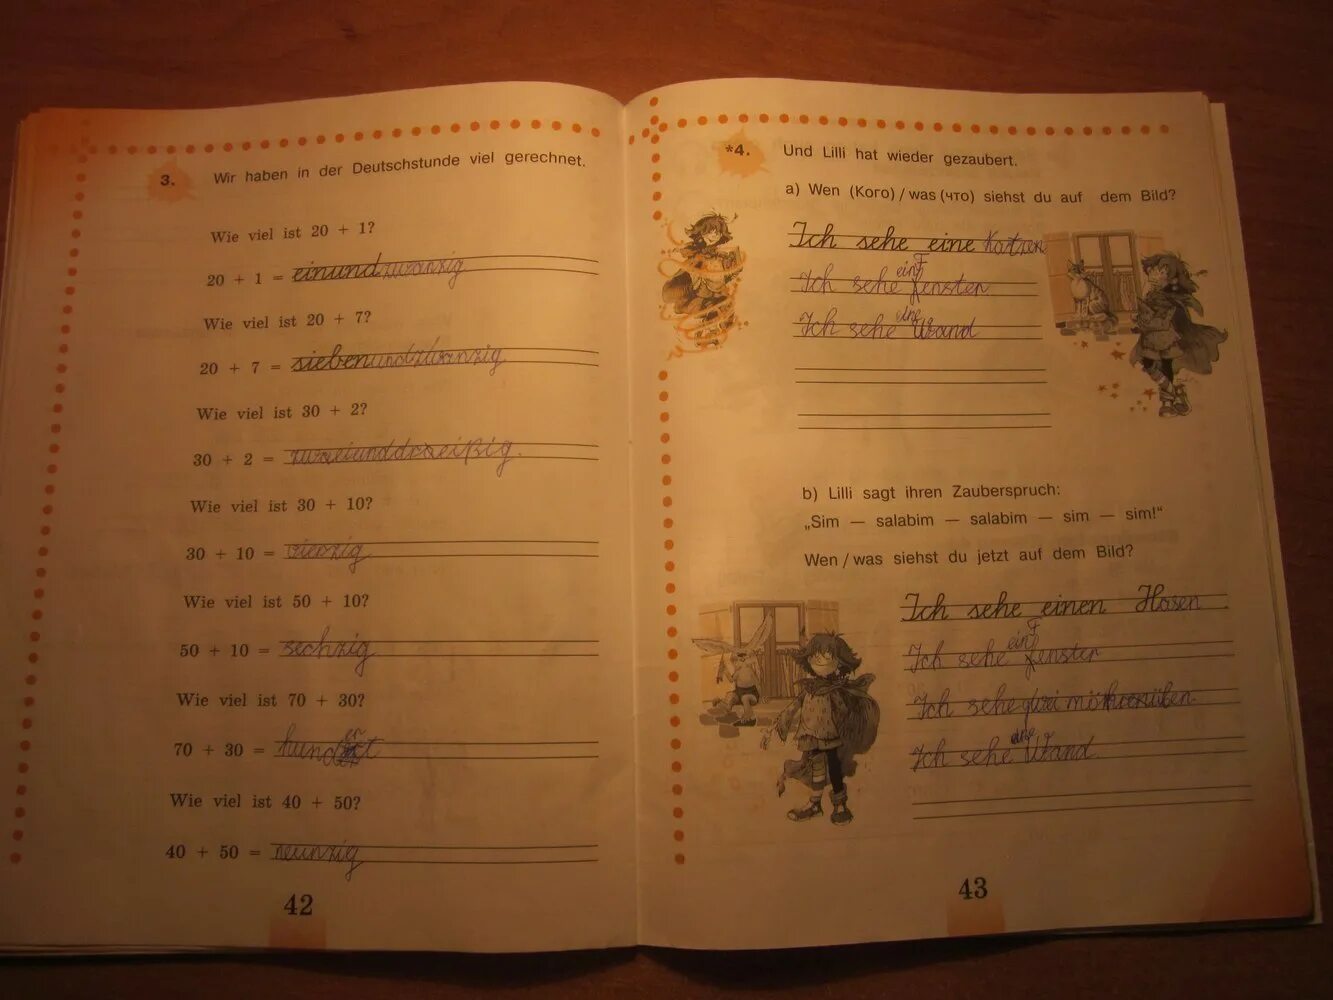 3. Wir haben in der Deutschstunde viel gerechnet.
Wie viel ist 20 + 1?
20 + 1 = einundzwanzig
Wie viel ist 20 + 7?
20 + 7 = siebenundzwanzig
Wie viel ist 30 + 2?
30 + 2 = zweiunddreißig.
Wie viel ist 30 + 10?
30 + 10 = vierzig
Wie viel ist 50 + 10?
50 + 10 = sechzig
Wie viel ist 70 + 30?
70 + 30 = hundert
Wie viel ist 40 + 50?
40 + 50 = neunzig
42
*4. Und Lilli hat wieder gezaubert.
a) Wen (Кого) / was (что) siehst du auf dem Bild?
Ich sehe eine Katzen
Ich sehe ein Fenster
Ich sehe eine Wand
b) Lilli sagt ihren Zauberspruch:
„Sim — salabim — salabim — sim — sim!“
Wen / was siehst du jetzt auf dem Bild?
Ich sehe einen Hasen.
Ich sehe ein Fenster
Ich sehe zwei
Ich sehe eine Wand.
43